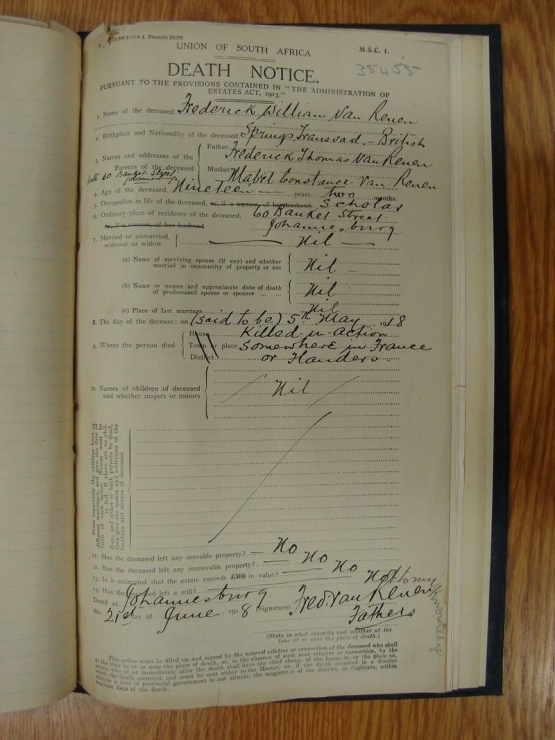 UNION OF SOUTH AFRICA
M.S.C. 1.
DEATH NOTICE.
PURSUANT TO THE PROVISIONS CONTAINED IN "THE ADMINISTRATION OF
ESTATES ACT, 1913."
1. Name of the deceased Frederick William Van Renen
2. Birthplace and Nationality of the deceased Springs Transvaal – British
3. Names and addresses of the Parents of the deceased
Father Frederick Thomas Van Renen
Mother Mabel Constance Van Renen
both 60 Banket Street Johannesburg
4. Age of the deceased Nineteen years two months.
5. Occupation in life of the deceased, or, if a woman, of her husband Scholar
6. Ordinary place of residence of the deceased, 60 Banket Street
or, if a woman, of her husband Johannesburg
7. Married or unmarried, widower or widow — Nil —
(a) Name of surviving spouse (if any) and whether married in community of property or not Nil
(b) Name or names and approximate date of death of predeceased spouse or spouses Nil
(c) Place of last marriage Nil
8. The day of the decease: on (said to be) 5th May 1918
9. Where the person died
House Killed in action
Town or place Somewhere in France
District or Flanders
10. Names of children of deceased and whether majors or minors Nil
11. Has the deceased left any movable property? — No
12. Has the deceased left any immovable property? — No
13. Is it estimated that the estate exceeds £300 in value? — No
14. Has the deceased left a will? Not to my knowledge
Dated at Johannesburg
the 21st day of June 1918 (Signature) Fred. Van Renen
Father
(State in what capacity and whether at the time of or near the place of death.)
This notice must be filled up and signed by the nearest relative or connection of the deceased who shall